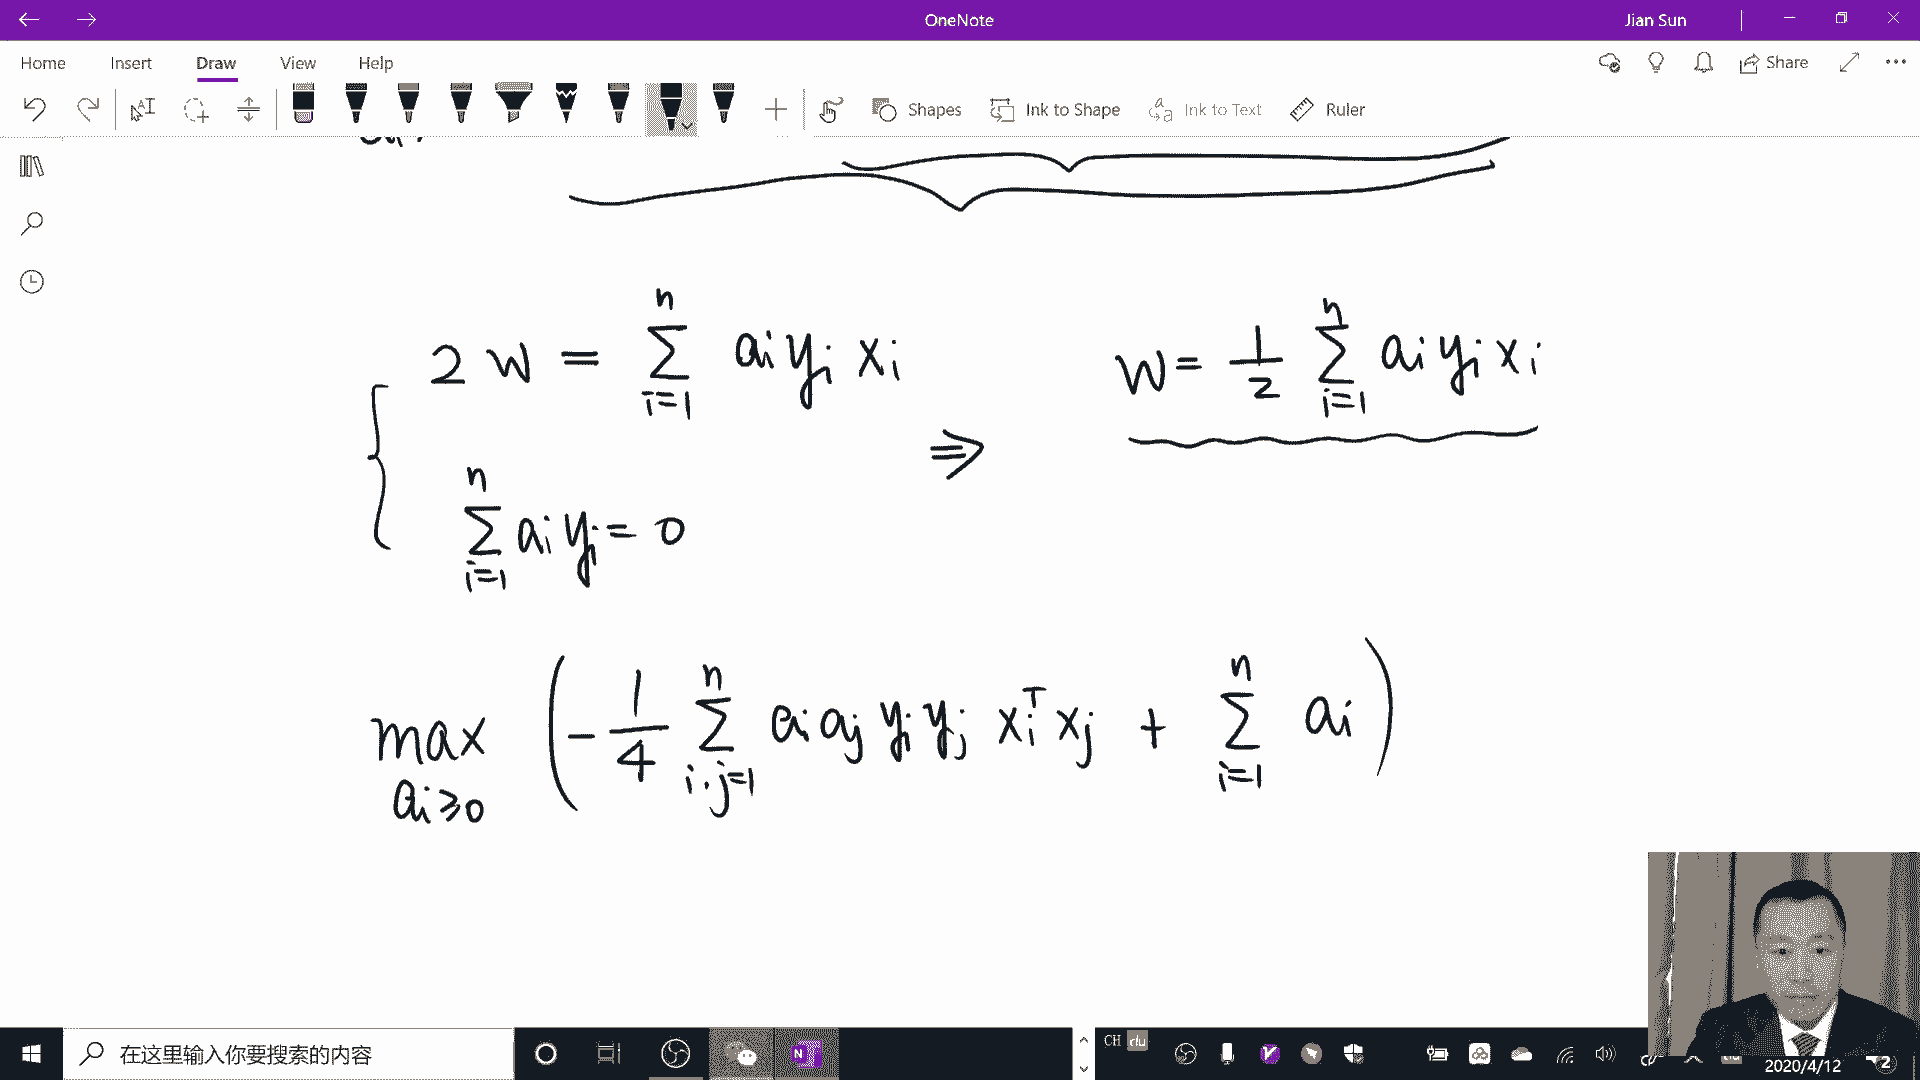 OneNote
Jian Sun
Home Insert Draw View Help
Share
Shapes Ink to Shape Ink to Text Ruler
2 w = ∑_{i=1}^{n} a_i y_i x_i
⇒ w = 1/2 ∑_{i=1}^{n} a_i y_i x_i
∑_{i=1}^{n} a_i y_i = 0
max_{a_i ≥ 0} ( - 1/4 ∑_{i.j=1}^{n} a_i a_j y_i y_j x_i^T x_j + ∑_{i=1}^{n} a_i )
在这里输入你要搜索的内容
CH
2020/4/12
2